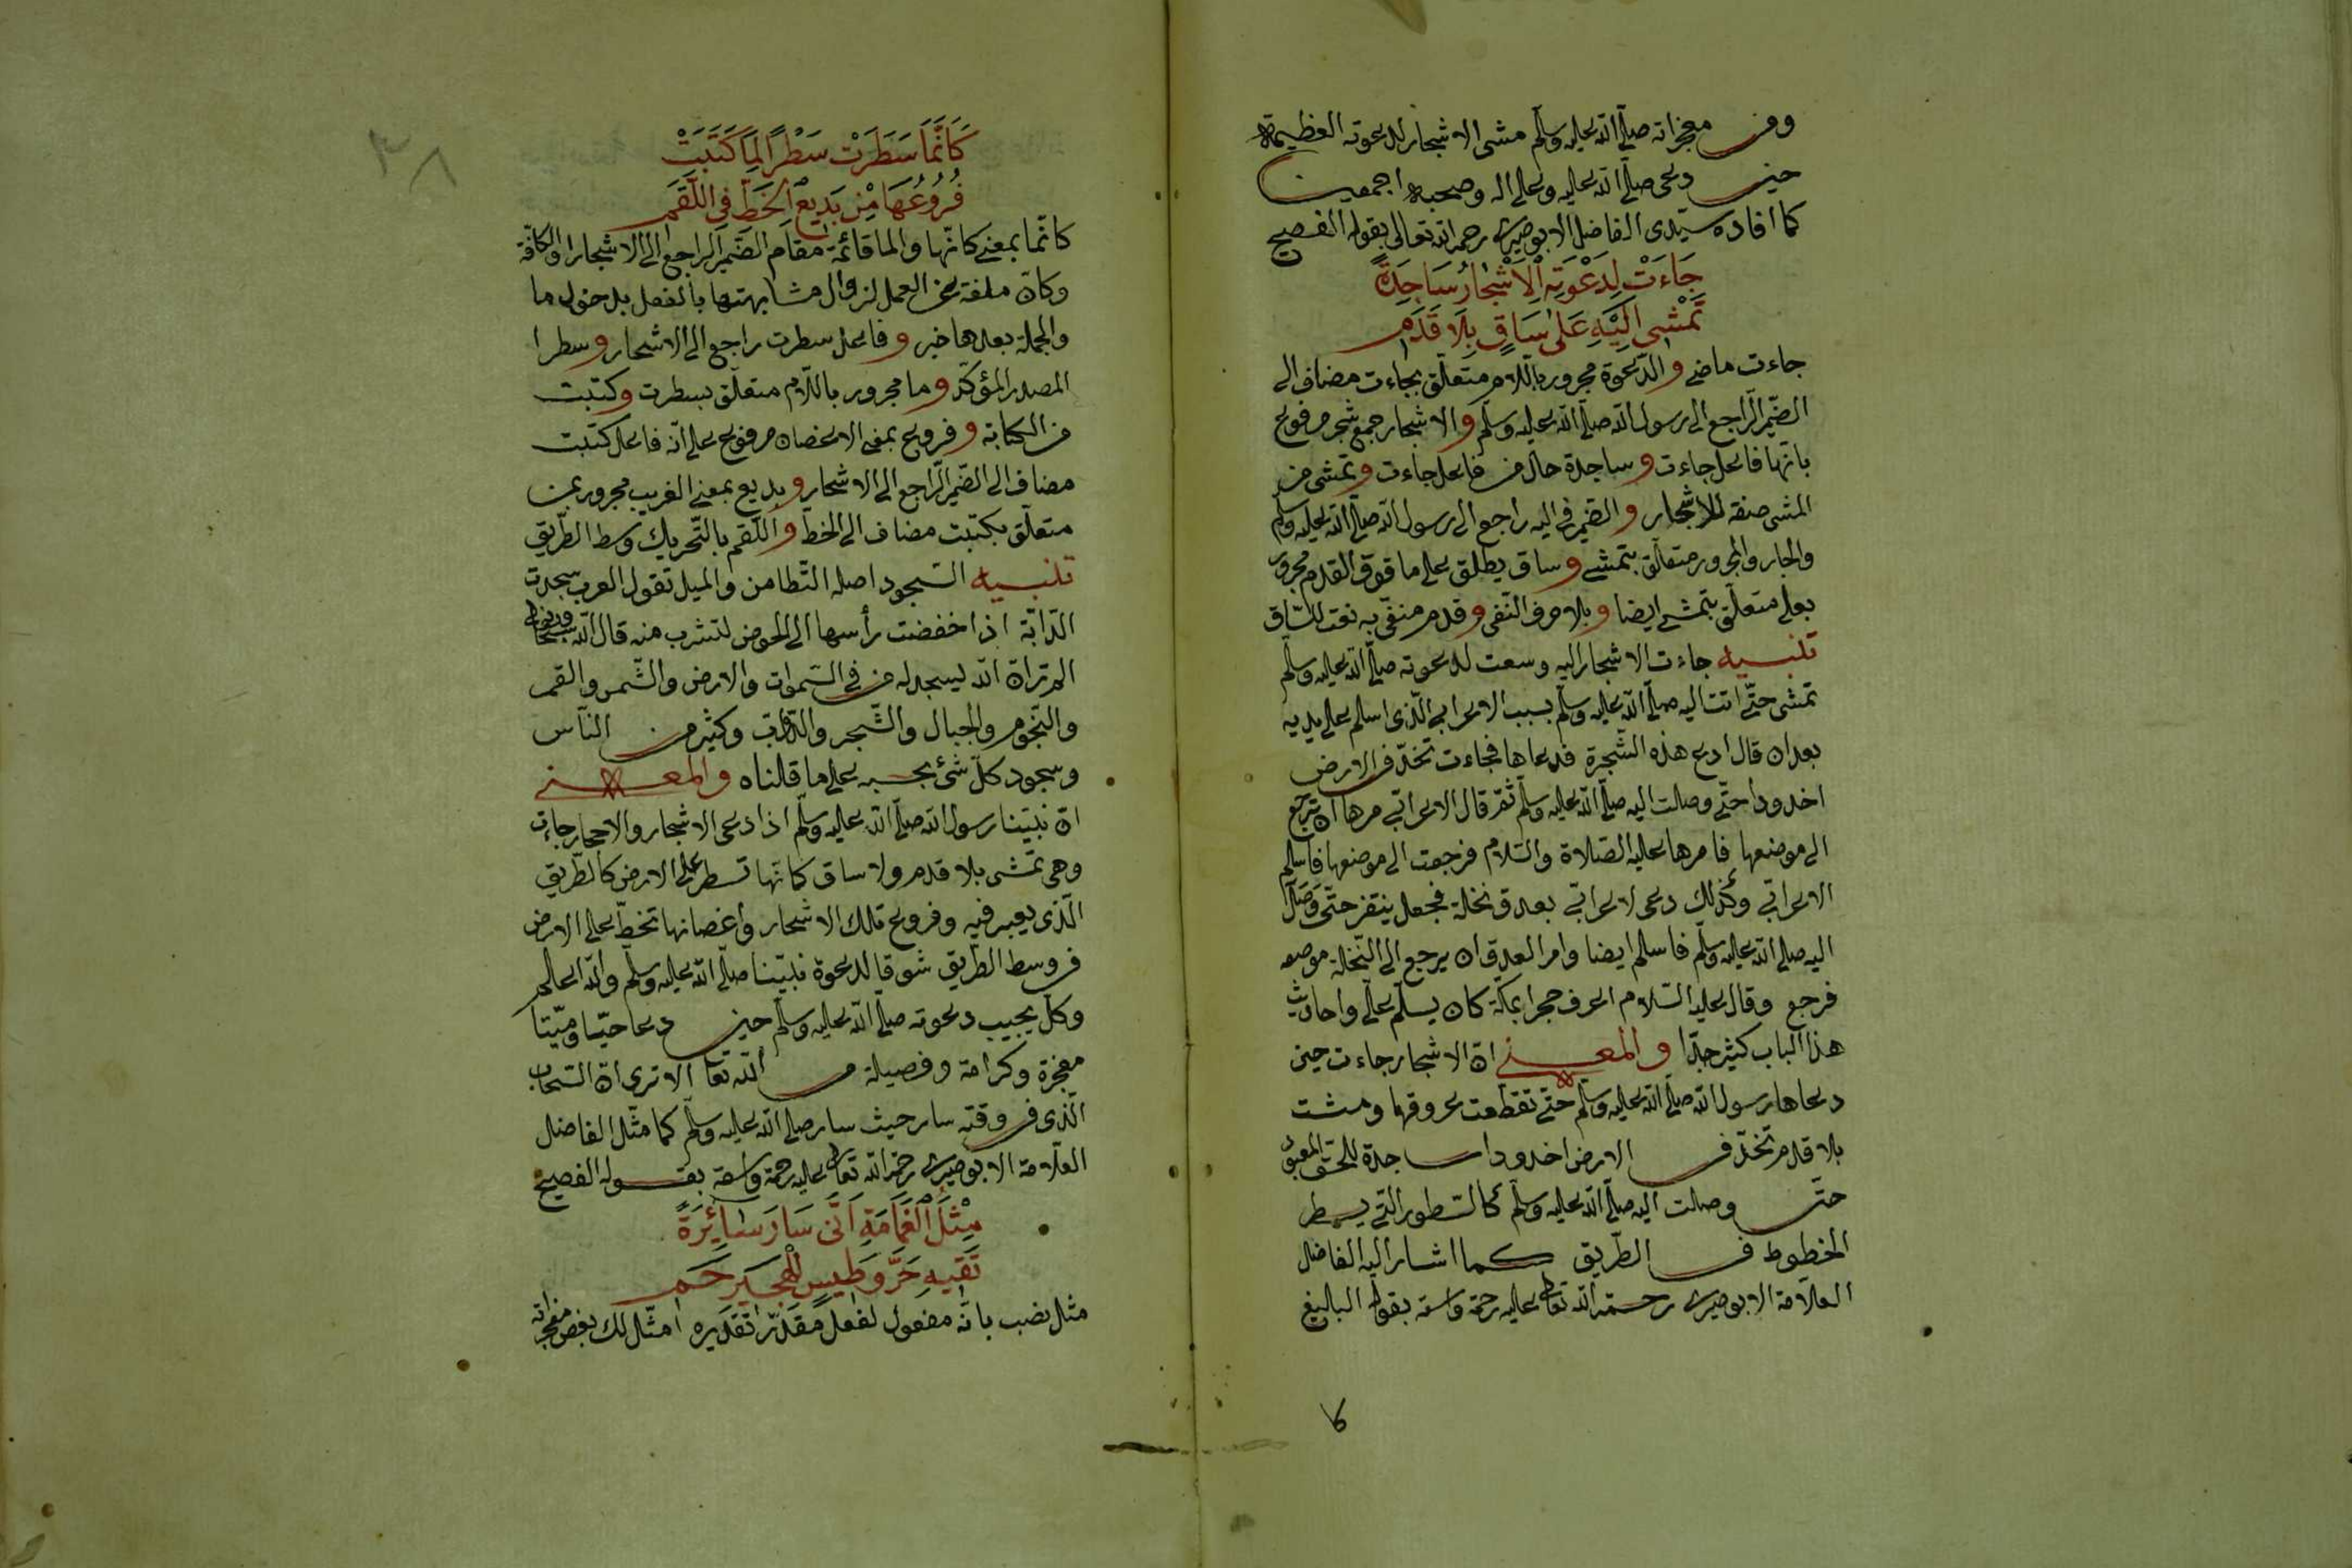 ومن معجزاته صلّى الله عليه وسلّم مشى الاشجار لدعوته العظيمة
حين دعى صلّى الله عليه وعلى اله وصحبه اجمعين
كما افاده سيّدى الفاضل الابوصيرى رحمه الله تعالى بقوله الفصيح
جَاءَتْ لِدَعْوَتِهِ الْاَشْجَارُ سَاجِدَةً
تَمْشِى اِلَيْهِ عَلٰى سَاقٍ بِلَا قَدَمِ
جاءت ماضى والدّعوة مجرور باللّام متعلّق بجاءت مضاف الى
الضّمير الرّاجع الى رسول الله صلّى الله عليه وسلّم والاشجار جمع شجر مرفوع
بانّها فاعل جاءت وساجدة حال من فاعل جاءت وتمشى من
المشى صفة للاشجار والضّمير فى اليه راجع الى رسول الله صلّى الله عليه وسلّم
والجار والمجرور متعلّق بتمشى وساق يطلق على ما فوق القدم مجرور
بعلى متعلّق بتمشى ايضا وبلا حرف النّفى وقدم منفىّ به نعت للسّاق
تنبيه جاءت الاشجار اليه وسعت لدعوته صلّى الله عليه وسلّم
تمشى حتّى اتت اليه صلّى الله عليه وسلّم بسبب الاعرابى الّذى اسلم على يديه
بعد ان قال ادع هذه الشّجرة فدعاها فجاءت تخدّ فى الارض
اخدودا حتّى وصلت اليه صلّى الله عليه وسلّم ثمّ قال الاعرابىّ مرها ان ترجع
الى موضعها فامرها عليه الصّلاة والسّلام فرجعت الى موضعها فاسلم
الاعرابىّ وكذلك دعى لاعرابىّ بعذق نخلة فجعل ينقز حتّى وصل
اليه صلّى الله عليه وسلّم فاسلم ايضا وامر العذق ان يرجع الى النّخلة موضعه
فرجع وقال عليه السّلام اعرف حجرا بمكّة كان يسلّم علىّ واحاديث
هذا الباب كثير جدّا والمعنى انّ الاشجار جاءت حين
دعاها رسول الله صلّى الله عليه وسلّم حتّى تقطعت عروقها ومشت
بلا قدم تخدّ فى الارض اخدودا ساجدة للحقّ المعبود
حتّى وصلت اليه صلّى الله عليه وسلّم كالسّطور الّتى يسطر
الخطوط فى الطّريق كما اشار اليه الفاضل
العلّامة الابوصيرى رحمه الله تعالى عليه رحمة واسعة بقوله الباليغ
٣٨
كَاَنَّمَا سَطَرَتْ سَطْرًا لِمَا كَتَبَتْ
فُرُوعُهَا مِنْ بَدِيعِ الْخَطِّ فِى اللَّقَمِ
كانّما بمعنى كانّها والما قائمة مقام الضّمير الراجع الى الاشجار او الكافّة
وكانّ ملغة عن العمل لزوال مشابهتها بالفعل بدخول ما
والجملة بعدها خبر وفاعل سطرت راجع الى الاشجار وسطرا
المصدر المؤكّد وما مجرور باللّام متعلّق بسطرت وكتبت
من الكتابة وفروع بمعنى الاغصان مرفوع على انّه فاعل كتبت
مضاف الى الضّمير الرّاجع الى الاشجار وبديع بمعنى الغريب مجرور بمن
متعلّق بكتبت مضاف الى الخطّ واللّقم بالتّحريك وسط الطّريق
تنبيه السّجود اصله التّطامن والميل تقول العرب سجدت
الدّابّة اذا خفضت رأسها الى الحوض لتشرب منه قال الله سبحانه
الم تر انّ الله ليسجد له من فى السّموات والارض والشّمس والقمر
والنّجوم والجبال والشّجر والدّوابّ وكثير من النّاس
وسجود كلّ شئ بحسبه على ما قلناه والمعنى
انّ نبيّنا رسول الله صلّى الله عليه وسلّم اذا دعى الاشجار والاحجار جاءت
وهى تمشى بلا قدم ولا ساق كانّها تسطر على الارض كالطّريق
الّذى يعبر فيه وفروع تلك الاشجار واغصانها تخطّ على الارض
فى وسط الطّريق شوقا لدعوة نبيّنا صلّى الله عليه وسلّم والله اعلم
وكلّ يجيب دعوته صلّى الله عليه وسلّم حين دعا حيّا وميّتا
معجزة وكرامة وفضيلة من الله تعا الا ترى انّ السّحاب
الّذى فى وقته سار حيث سار صلّى الله عليه وسلّم كما مثّل الفاضل
العلّامة الابوصيرى رحمه الله تعالى عليه رحمة واسعة بقوله الفصيح
مِثْلَ الْغَمَامَةِ اَنَّى سَارَ سَائِرَةً
تَقِيهِ حَرَّ وَطِيسٍ لِلْهَجِيرِ حَمِى
مثل نصب بانّه مفعول لفعل مقدّر تقديره امثّل لك بعض معجزاته